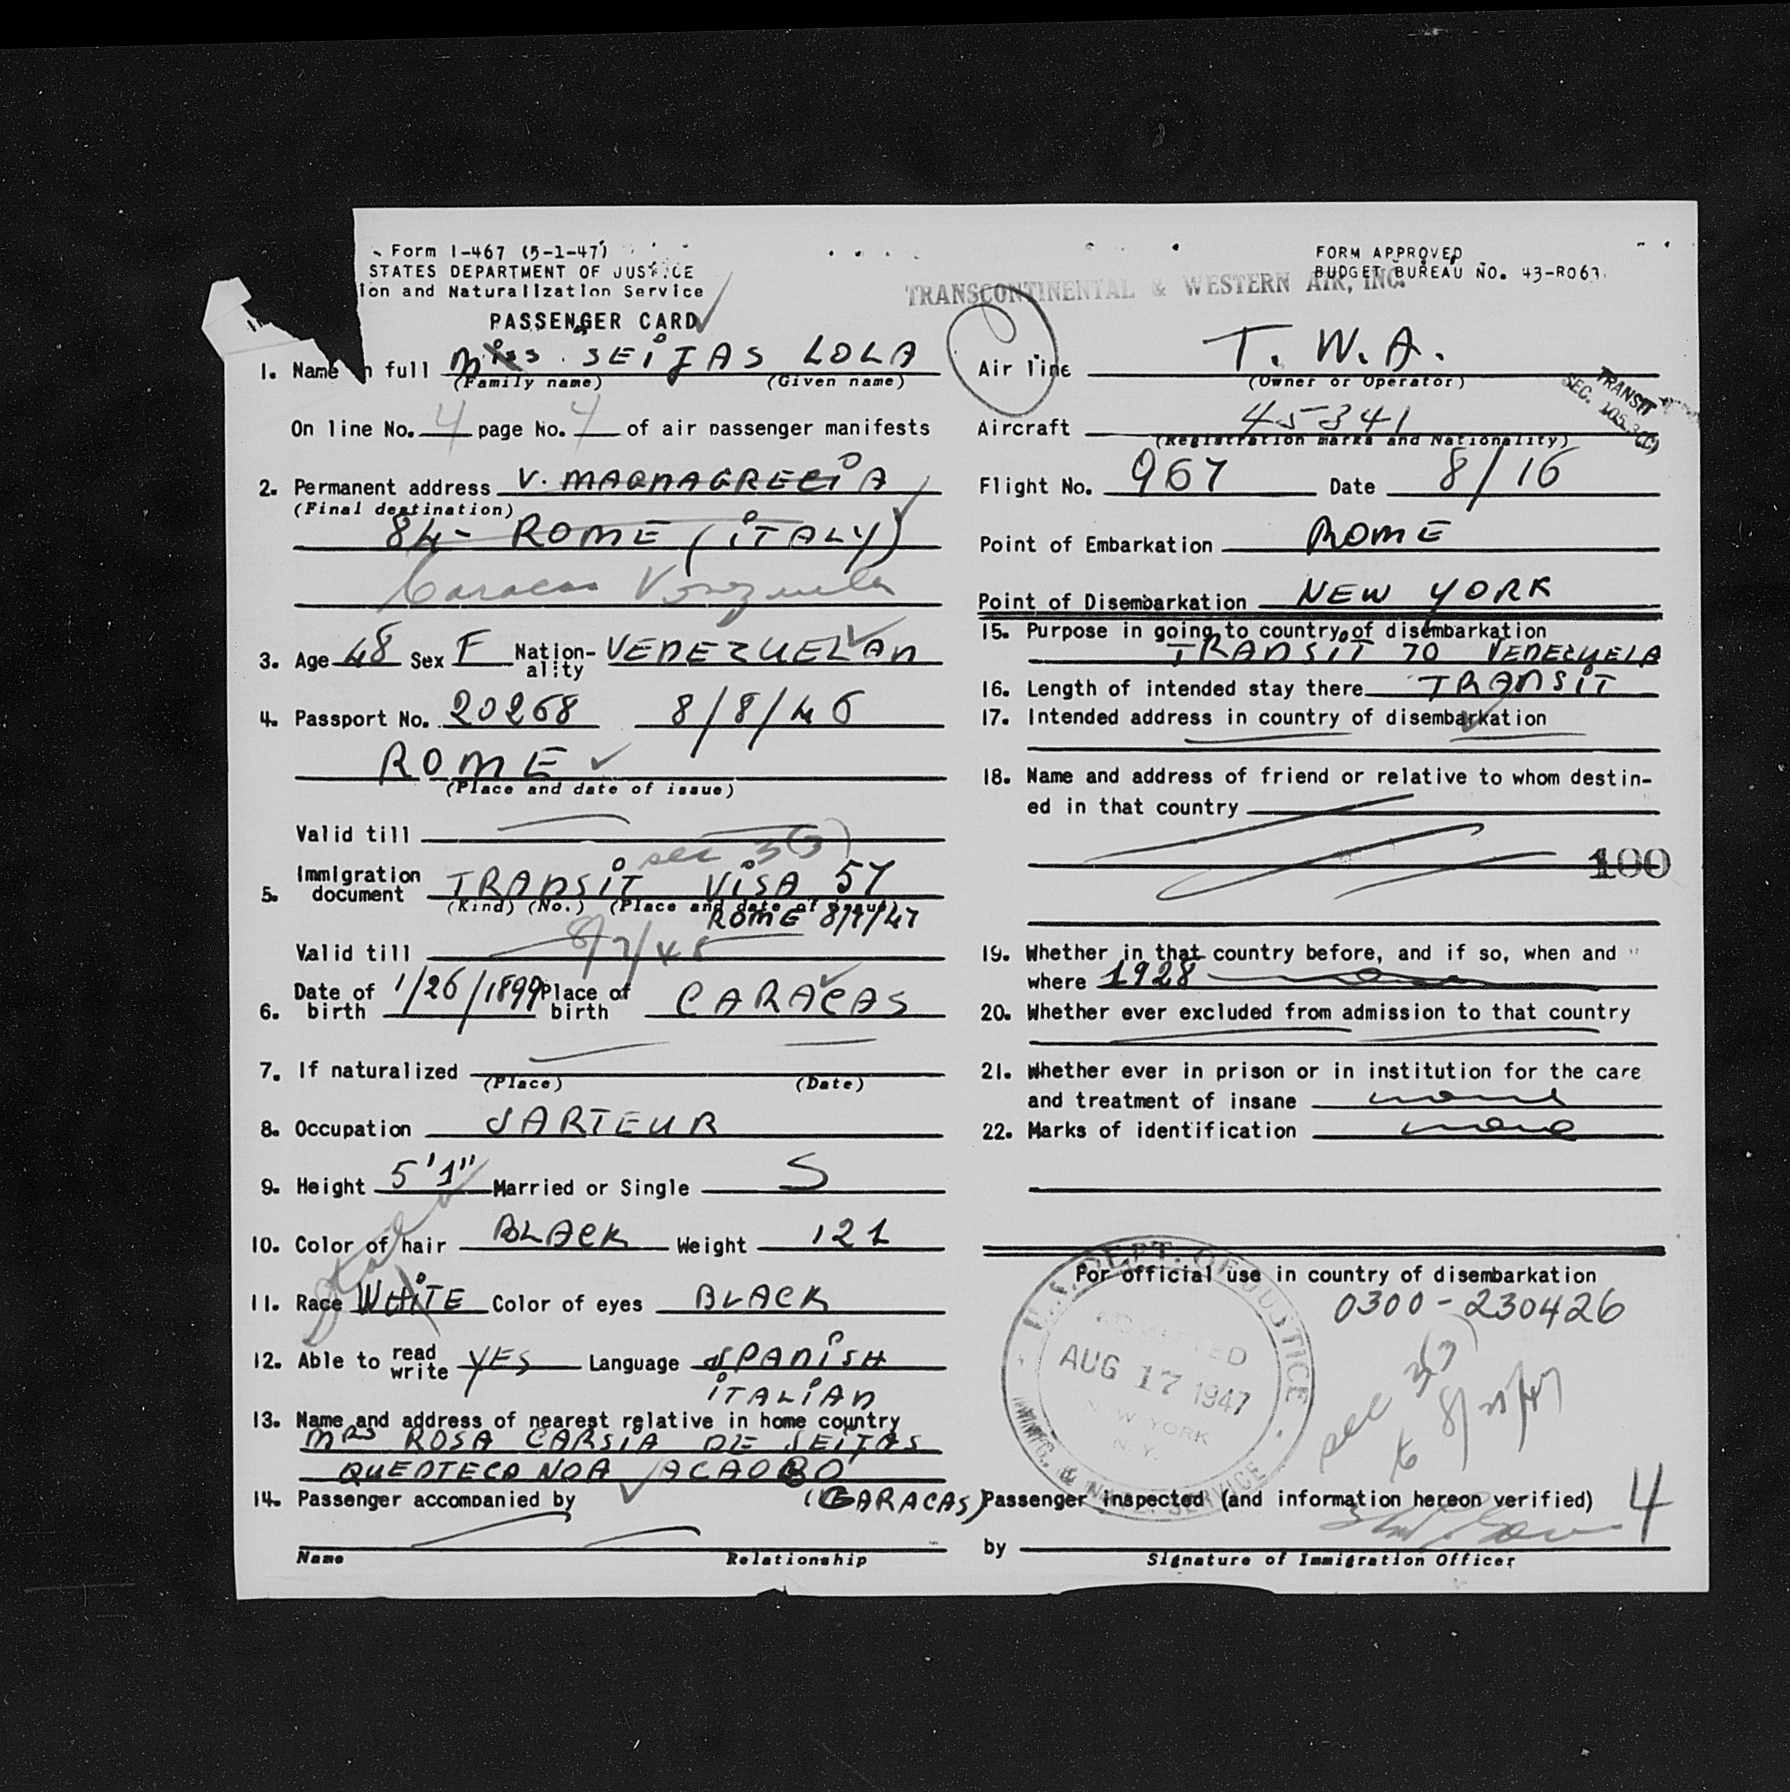 Form I-467 (5-1-47)
STATES DEPARTMENT OF JUSTICE
ion and Naturalization Service
PASSENGER CARD
FORM APPROVED
BUDGET BUREAU NO. 43-R063.
TRANSCONTINENTAL & WESTERN AIR, INC.
1. Name in full Miss SEIJAS LOLA
(Family name) (Given name)
On line No. 4 page No. 4 of air passenger manifests
2. Permanent address V. MAGNAGRECIA
(Final destination)
84 - ROME (ITALY)
Caracas Venezuela
3. Age 48 Sex F Nation-ality VENEZUELAN
4. Passport No. 20268 8/8/46
ROME
(Place and date of issue)
Valid till
sec 3(3)
5. Immigration document TRANSIT VISA 57
(Kind) (No.) (Place and date of issue)
ROME 8/7/47
Valid till 8/7/48
6. Date of birth 1/26/1899 Place of birth CARACAS
7. If naturalized
(Place) (Date)
8. Occupation SARTEUR
9. Height 5'1" Married or Single S
10. Color of hair BLACK Weight 121
11. Race WHITE Color of eyes BLACK
12. Able to read write YES Language SPANISH
ITALIAN
13. Name and address of nearest relative in home country
MRS ROSA CARSIA DE SEIJAS
14. Passenger accompanied by
(CARACAS)
Name Relationship
Air line T. W. A.
(Owner or Operator)
TRANSIT
SEC. 105.3(C)
Aircraft 45341
(Registration marks and Nationality)
Flight No. 967 Date 8/16
Point of Embarkation ROME
Point of Disembarkation NEW YORK
15. Purpose in going to country of disembarkation
TRANSIT TO VENEZUELA
16. Length of intended stay there TRANSIT
17. Intended address in country of disembarkation
18. Name and address of friend or relative to whom destin-
ed in that country
100
19. Whether in that country before, and if so, when and
where 1928
20. Whether ever excluded from admission to that country
21. Whether ever in prison or in institution for the care
and treatment of insane none
22. Marks of identification none
For official use in country of disembarkation
0300-230426
U.S. DEPT. OF JUSTICE
ADMITTED
AUG 17 1947
NEW YORK
N.Y.
IMMIG. & NATZ. SERVICE
sec 3(3)
Passenger inspected (and information hereon verified) 4
by
Signature of Immigration Officer